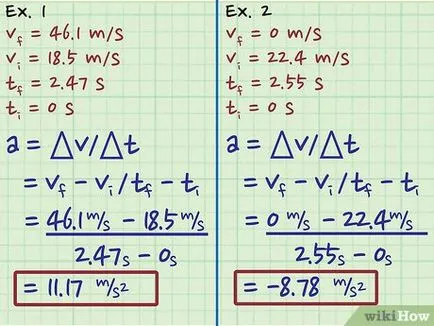 Ex. 1
vf = 46.1 m/s
vi = 18.5 m/s
tf = 2.47 s
ti = 0 s
a = Δv/Δt
= vf - vi/tf - ti
= 46.1 m/s - 18.5 m/s
2.47s - 0s
= 11.17 m/s²
Ex. 2
vf = 0 m/s
vi = 22.4 m/s
tf = 2.55 s
ti = 0 s
a = Δv/Δt
= vf - vi/tf - ti
= 0 m/s - 22.4 m/s
2.55s - 0s
= -8.78 m/s²
wikiHow